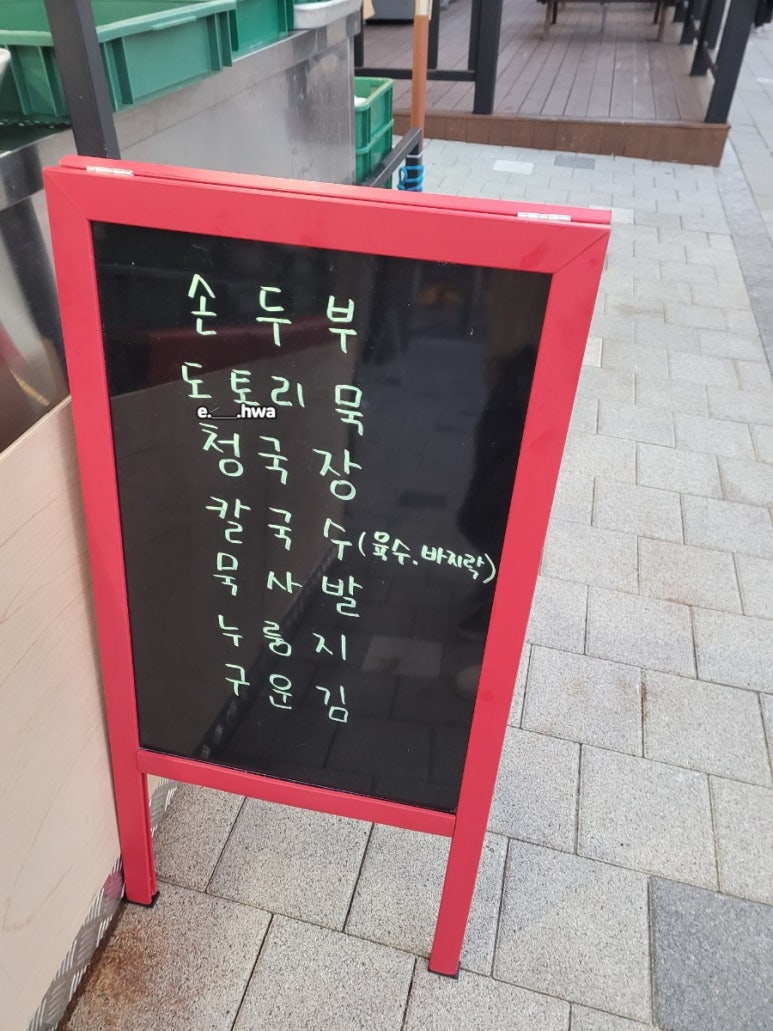 손두부
도토리묵
e.___.hwa
청국장
칼국수(육수.바지락)
묵사발
누룽지
구운김